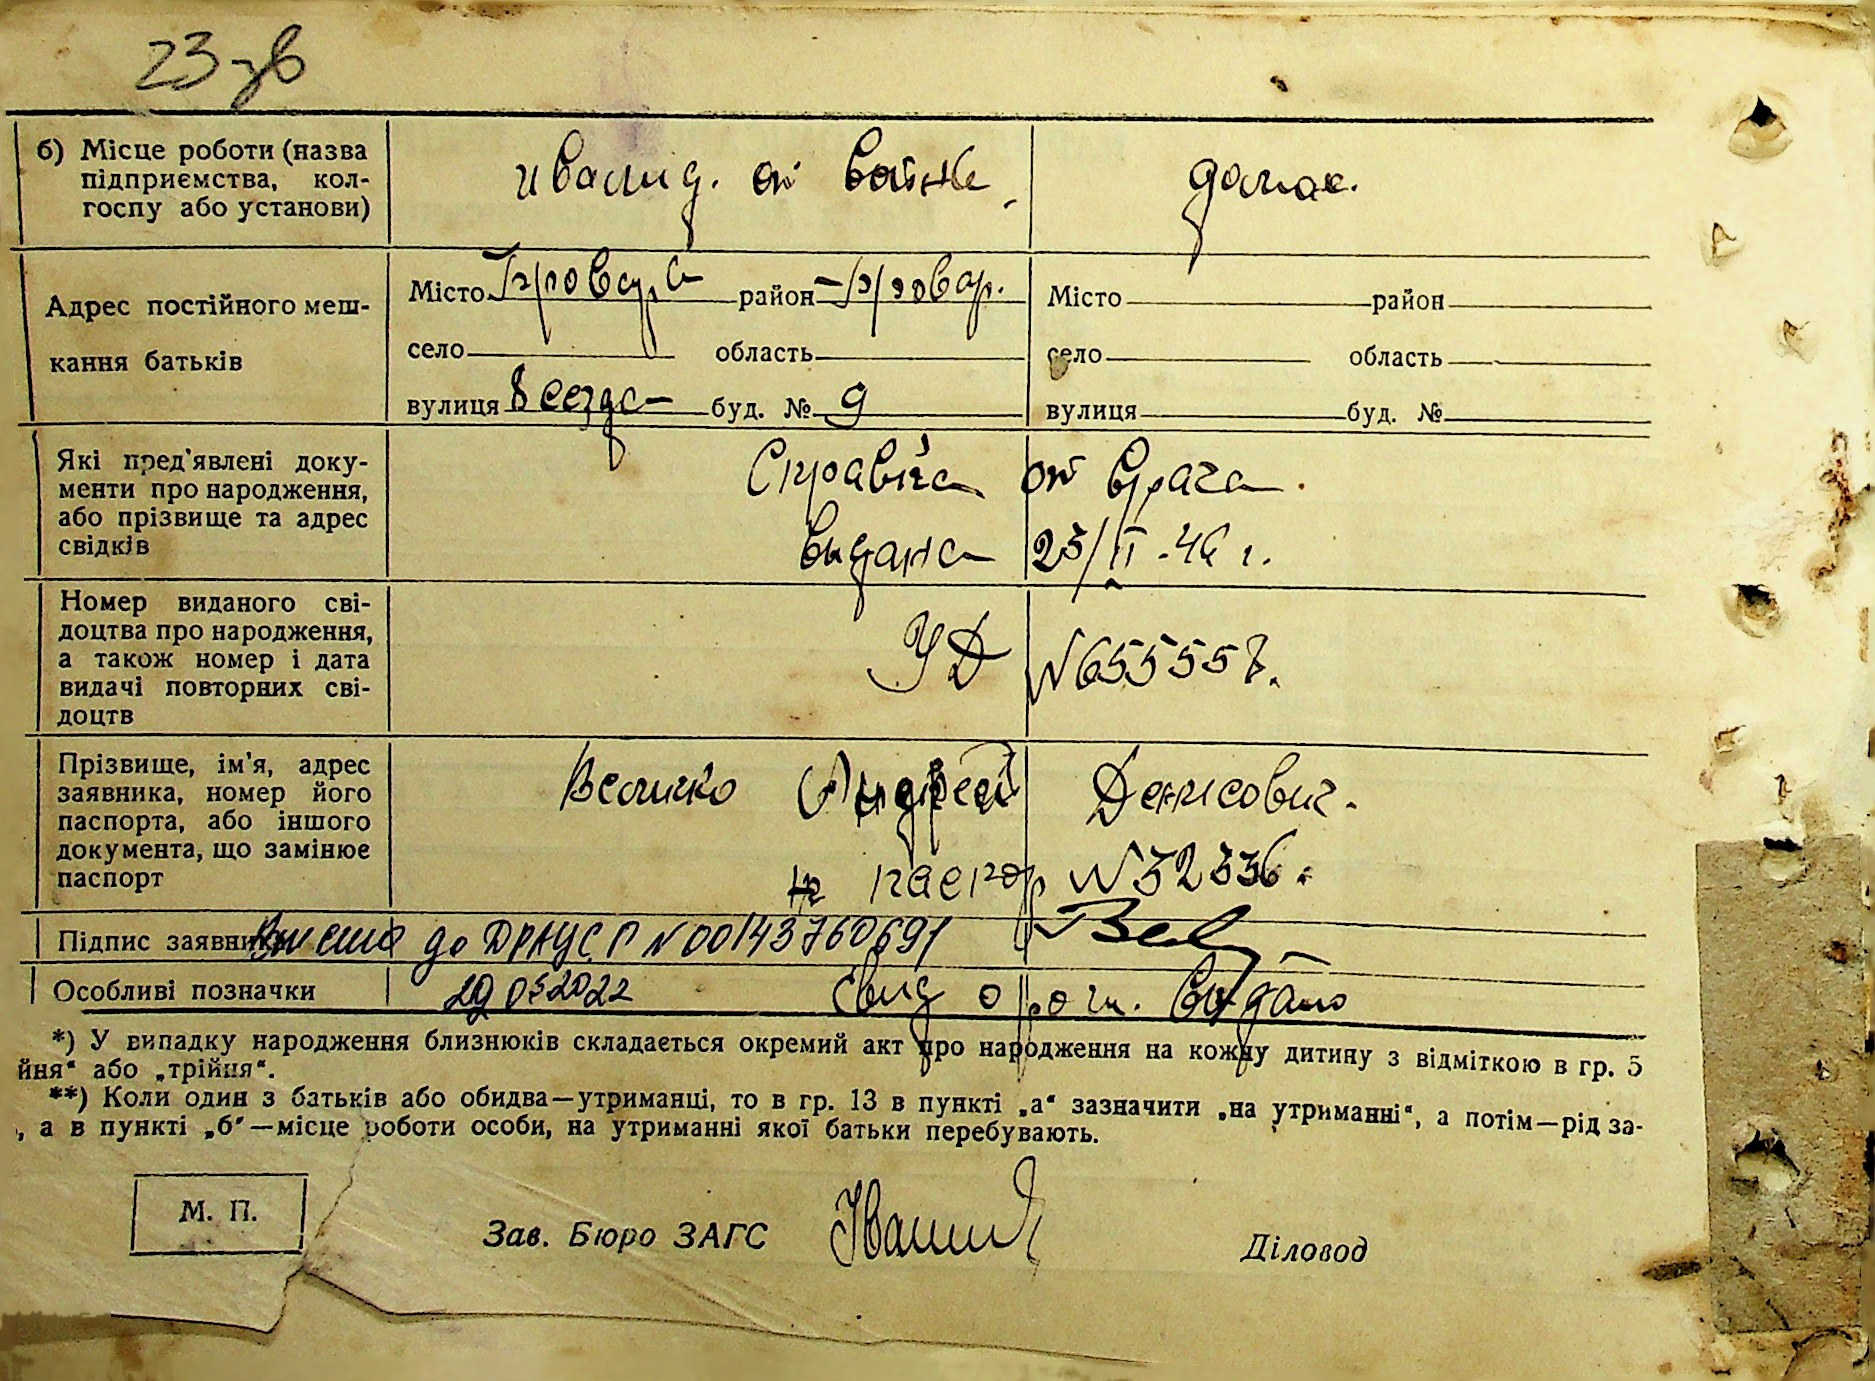 23 зв
б) Місце роботи (назва
підприємства, кол-
госпу або установи)
ивалид. от войне,
домах.
Адрес постійного меш-
кання батьків
Місто Бровары район Бровар.
село область
вулиця буд. № 9
Місто район
село область
вулиця буд. №
Які пред'явлені доку-
менти про народження,
або прізвище та адрес
свідків
Справка от врача.
выдана 23/II-46 г.
Номер виданого сві-
доцтва про народження,
а також номер і дата
видачі повторних сві-
доцтв
УД №655557.
Прізвище, ім'я, адрес
заявника, номер його
паспорта, або іншого
документа, що замінює
паспорт
Величко Андрей Денисович.
паспор №32336.
Підпис заявника
Внесено до ДРАЦСГ №00143760691
Особливі позначки
20 05 2022
Свид о рожд. выдано
*) У випадку народження близнюків складається окремий акт про народження на кожну дитину з відміткою в гр. 5
йня“ або „трійня“.
**) Коли один з батьків або обидва—утриманці, то в гр. 13 в пункті „а“ зазначити „на утриманні“, а потім—рід за-
, а в пункті „б“—місце роботи особи, на утриманні якої батьки перебувають.
М. П.
Зав. Бюро ЗАГС
Діловод